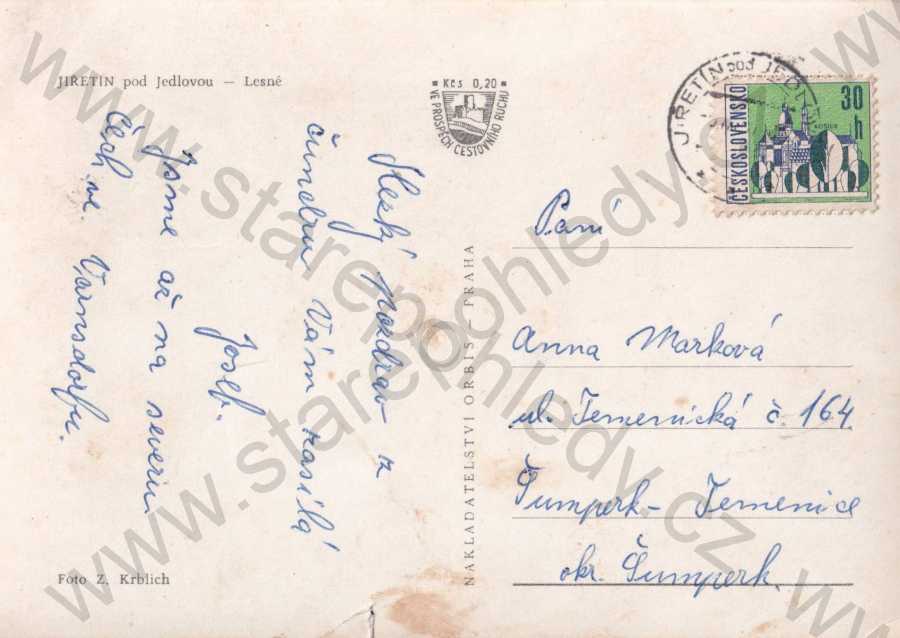 JIŘETÍN pod Jedlovou — Lesné
Kčs 0,20
VE PROSPĚCH CESTOVNÍHO RUCHU
JIŘETÍN pod JEDL
ČESKOSLOVENSKO
30
h
KOŠICE
Hezký pozdrav z
čundru Vám zasílá
Josef.
Jsme až na severu
Čech ve Varnsdorfu.
NAKLADATELSTVÍ ORBIS — PRAHA
Paní
Anna Marková
ul. Temenická č. 164
Šumperk - Temenice
okr. Šumperk.
Foto Z. Krblich
www.starepohledy.cz
www.starepohledy.cz